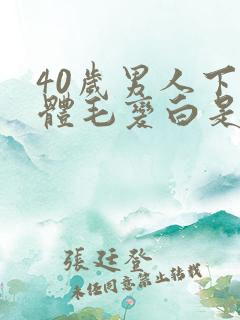 40歲男人下
體毛變白是
張廷登
未經同意禁止轉載